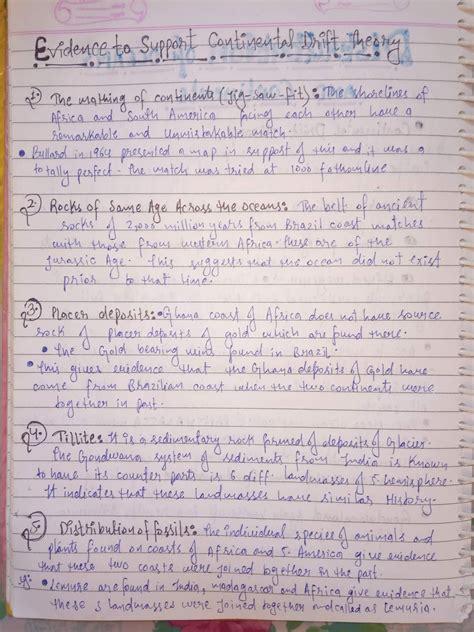 Evidence to Support Continental Drift Theory
1. The mathing of continents (jig-saw-fit): The shorelines of
Africa and South America facing each other have a
remarkable and Unmistakable match.
• Bullard in 1964 presented a map in support of this and it was a
totally perfect. The match was tried at 1000 fathomline
2. Rocks of Same Age Across the oceans: The belt of ancient
rocks of 2,000 million years from Brazil coast matches
with those from western Africa. these are of the
Jurassic Age. This suggests that the ocean did not exist
prior to that time.
3. Placer deposits: Ghana coast of Africa does not have source
rock of placer deposits of gold which are found there.
• The Gold bearing viens found in Brazil.
• This gives evidence that the Ghana deposits of Gold have
come from Brazilian coast when the two continents were
together in past.
4. Tillite: It is a sedimentary rock formed of deposits of Glacier.
The Gondwana system of sediments from India is Known
to have its counter parts is 6 diff. landmasses of S. hemisphere.
It indicates that these landmasses have similar History.
5. Distribution of fossils: The individual species of animals and
plants found on coasts of Africa and S. America give evidence
that these two coasts were joined together in the past.
eg: • Lemure are found in India, madagascar and Africa give evidence that
these 3 landmasses were joined together and called as Lemuria.